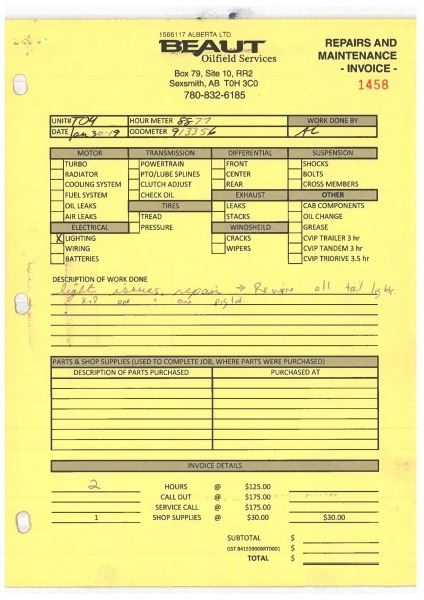 1566117 ALBERTA LTD.
BEAUT
Oilfield Services
Box 79, Site 10, RR2
Sexsmith, AB T0H 3C0
780-832-6185
REPAIRS AND
MAINTENANCE
- INVOICE -
1458
UNIT# T04 HOUR METER 8877 WORK DONE BY
DATE Jan 30-19 ODOMETER 913356 AC
MOTOR TRANSMISSION DIFFERENTIAL SUSPENSION
TURBO POWERTRAIN FRONT SHOCKS
RADIATOR PTO/LUBE SPLINES CENTER BOLTS
COOLING SYSTEM CLUTCH ADJUST REAR CROSS MEMBERS
FUEL SYSTEM CHECK OIL EXHAUST OTHER
OIL LEAKS TIRES LEAKS CAB COMPONENTS
AIR LEAKS TREAD STACKS OIL CHANGE
ELECTRICAL PRESSURE WINDSHEILD GREASE
X LIGHTING CRACKS CVIP TRAILER 3 hr
WIRING WIPERS CVIP TANDEM 3 hr
BATTERIES CVIP TRIDRIVE 3.5 hr
DESCRIPTION OF WORK DONE
light issues, repair → Rewire all tail light
one one
PARTS & SHOP SUPPLIES (USED TO COMPLETE JOB, WHERE PARTS WERE PURCHASED)
DESCRIPTION OF PARTS PURCHASED PURCHASED AT
INVOICE DETAILS
2 HOURS @ $125.00
CALL OUT @ $175.00
SERVICE CALL @ $175.00
1 SHOP SUPPLIES @ $30.00 $30.00
SUBTOTAL $
GST 841559008RT0001 $
TOTAL $